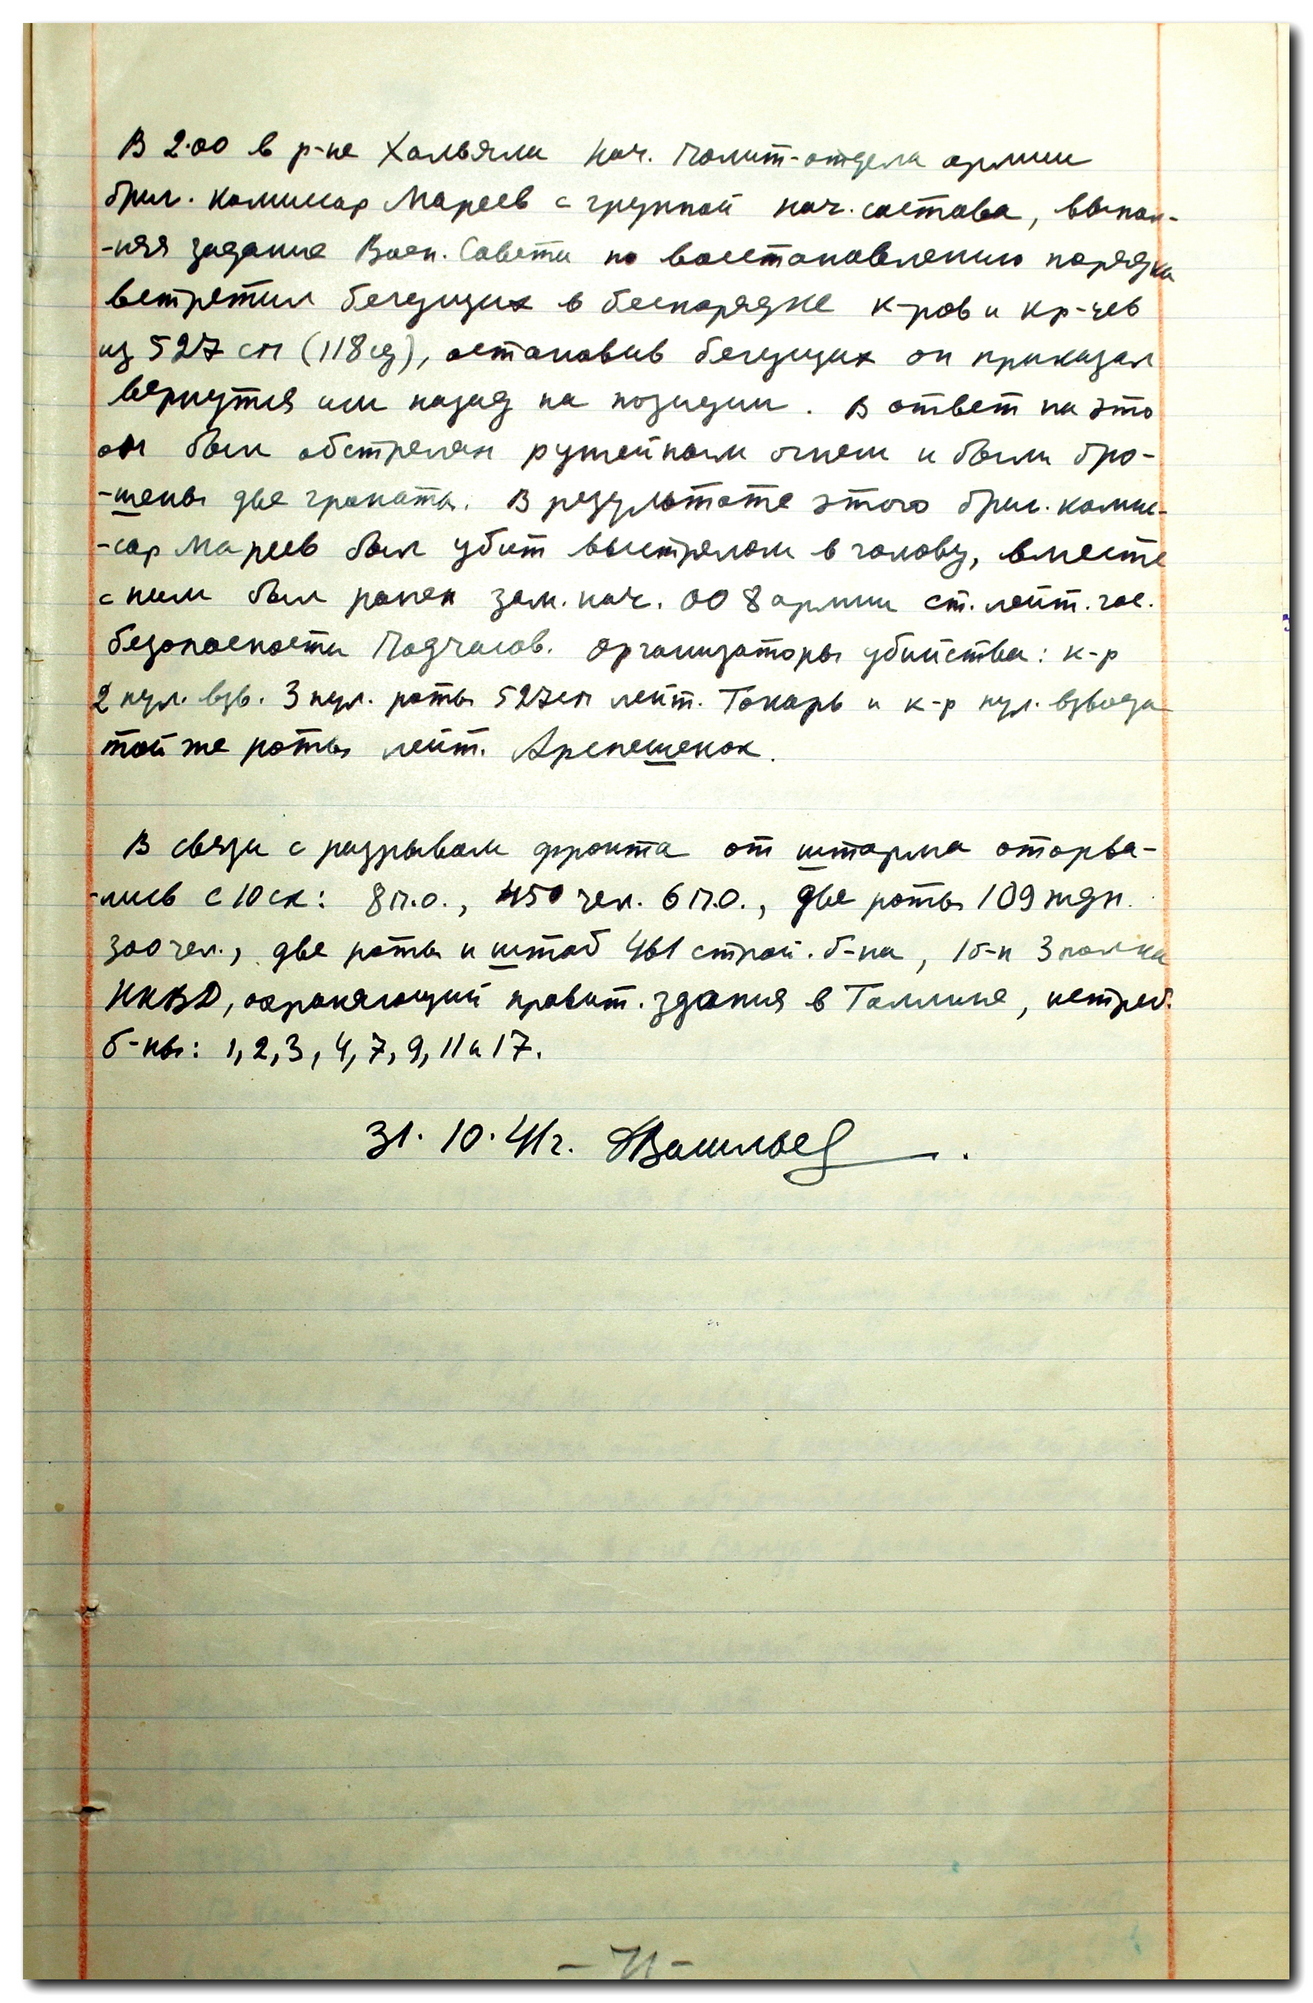 В 2.00 в р-не Хальяли нач. полит-отдела армии
бриг. комиссар Мареев с группой нач. состава, выпол-
-няя задание Воен. Совета по восстановлению порядка
встретил бегущих в беспорядке к-ров и кр-цев
из 527 сп (118 сд), остановив бегущих он приказал
вернутся им назад на позиции. В ответ на это
он был обстрелян ружейным огнем и были бро-
-шены две гранаты. В результате этого бриг. комис-
-сар Мареев был убит выстрелом в голову, вместе
с ним был ранен зам. нач. ОО 8 армии ст. лейт. гос.
безопасности Подчасов. Организаторы убийства: к-р
2 пул. взв. 3 пул. роты 527 сп лейт. Токарь и к-р пул. взвода
той же роты лейт. Арепешенок.
В связи с разрывом фронта от штарма оторва-
-лись с 10 ск: 8 п.о., 450 чел. 6 п.о., две роты 109 ждп.
300 чел., две роты и штаб 461 строй. б-на, 1 б-н 3 полка
НКВД, охраняющий правит. здания в Таллине, истреб.
б-ны: 1, 2, 3, 4, 7, 9, 11 и 17.
31. 10. 41 г. Васильев.
- 71 -